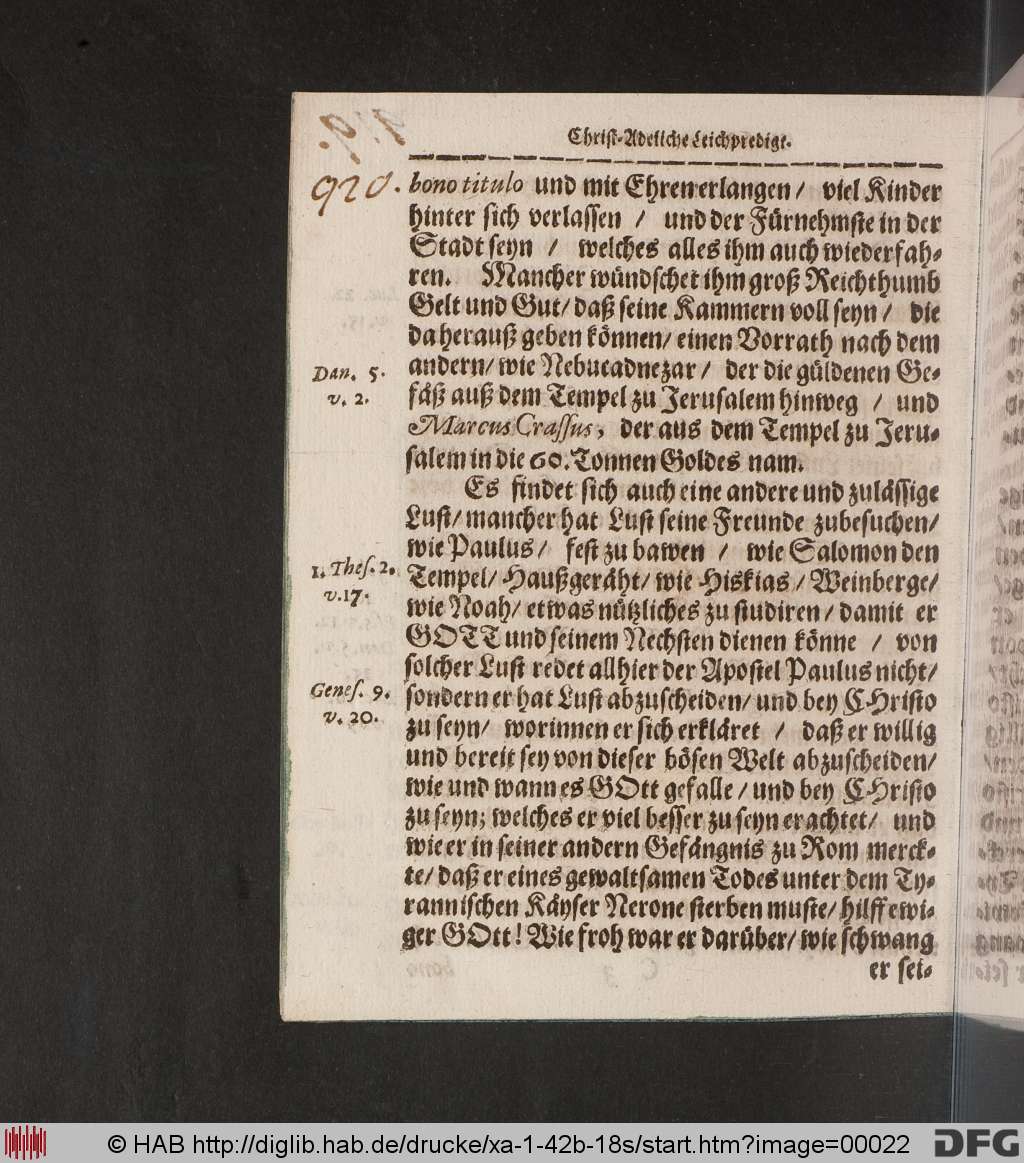 Christ-Adeliche Leichpredigt.
920. bono titulo und mit Ehren erlangen / viel Kinder
hinter sich verlassen / und der Fürnehmste in der
Stadt seyn / welches alles ihm auch wiederfah-
ren. Mancher wündschet ihm groß Reichthumb
Gelt und Gut/ daß seine Kammern voll seyn / die
da herauß geben können/ einen Vorrath nach dem
Dan. 5. andern/ wie Nebucadnezar / der die güldenen Ge-
v. 2. fäß auß dem Tempel zu Jerusalem hinweg / und
Marcus Crassus, der aus dem Tempel zu Jeru-
salem in die 60. Tonnen Goldes nam.
Es findet sich auch eine andere und zulässige
Lust/ mancher hat Lust seine Freunde zubesuchen/
wie Paulus / fest zu bawen / wie Salomon den
1. Thes. 2. Tempel/ Haußgeräht/ wie Hiskias / Weinberge/
v. 17. wie Noah/ etwas nützliches zu studiren / damit er
GOTT und seinem Nechsten dienen könne / von
solcher Lust redet allhier der Apostel Paulus nicht/
Genes. 9. sondern er hat Lust abzuscheiden/ und bey CHristo
v. 20. zu seyn/ worinnen er sich erkläret / daß er willig
und bereit sey von dieser bösen Welt abzuscheiden/
wie und wann es GOtt gefalle / und bey CHristo
zu seyn; welches er viel besser zu seyn erachtet/ und
wie er in seiner andern Gefängnis zu Rom merck-
te/ daß er eines gewaltsamen Todes unter dem Ty-
rannischen Käyser Nerone sterben muste/ hilff ewi-
ger GOtt! Wie froh war er darüber/ wie schwang
er sei-
© HAB http://diglib.hab.de/drucke/xa-1-42b-18s/start.htm?image=00022
DFG